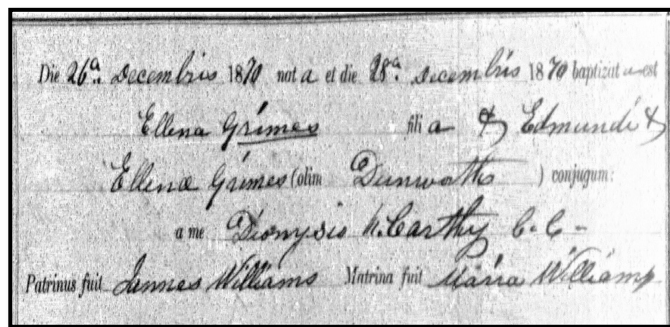 Die 26a. Decembris 1870 nata et die 28a. Decembris 1870 baptizata est
Ellena Grimes filia & Edmundi &
Ellenæ Grimes (olim Dunworth) conjugum:
a me Dionysio McCarthy C.C-
Patrinus fuit Jannes Williams Matrina fuit Maria Williams